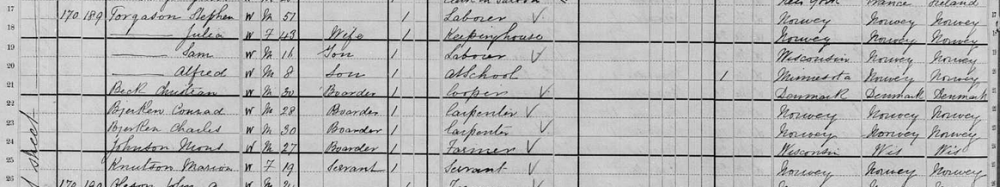 17 170 189 Torgason Stephen W M 51 1 Laborer Norway Norway Norway
18 — Julia W F 43 Wife 1 Keeping house Norway Norway Norway
19 — Sam W M 16 Son 1 Laborer Wisconsin Norway Norway
20 — Alfred W M 8 Son 1 At School 1 Minnesota Norway Norway
21 Beck Christian W M 30 Boarder 1 Cooper Denmark Denmark Denmark
22 Bjerken Conrad W M 28 Boarder 1 Carpenter Norway Norway Norway
23 Bjerken Charles W M 30 Boarder 1 Carpenter Norway Norway Norway
24 Johnson Mons W M 27 Boarder 1 Farmer Wisconsin Wis Wis
25 Knutson Marion W F 19 Servant 1 Servant Norway Norway Norway
street